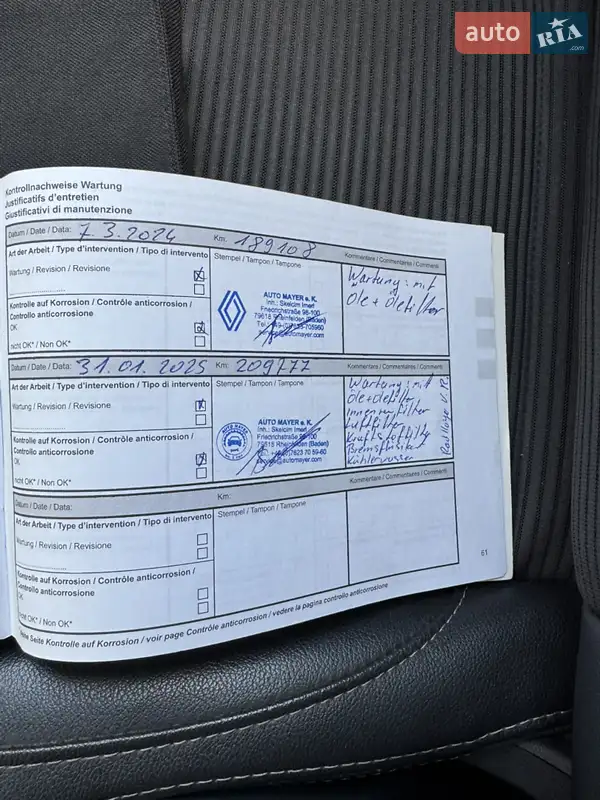 auto RIA .com
Kontrollnachweise Wartung
Justificatifs d'entretien
Giustificativi di manutenzione
Datum / Date / Data: 7.3.2024 Km: 189108 Kommentare / Commentaires / Commenti
Art der Arbeit / Type d'intervention / Tipo di intervento
Stempel / Tampon / Tampone
Wartung / Revision / Revisione
Kontrolle auf Korrosion / Contrôle anticorrosion /
Controllo anticorrosione
OK
nicht OK* / Non OK*
AUTO MAYER e. K.
Inh.: Skelcim Imeri
Friedrichstraße 98-100
79618 Rheinfelden (Baden)
Wartung: mit
Öle + Ölfilter
Datum / Date / Data: 31.01.2025 Km: 209777 Kommentare / Commentaires / Commenti
Art der Arbeit / Type d'intervention / Tipo di intervento
Stempel / Tampon / Tampone
Wartung / Revision / Revisione
Kontrolle auf Korrosion / Contrôle anticorrosion /
Controllo anticorrosione
OK
nicht OK* / Non OK*
AUTO MAYER e. K.
Inh.: Skelcim Imeri
Friedrichstraße 98-100
79618 Rheinfelden (Baden)
Wartung: mit
Öle + Ölfilter
Innenraumfilter
Luftfilter
Kraftstoffilter
Kühlerwasser
Datum / Date / Data: Km: Kommentare / Commentaires / Commenti
Art der Arbeit / Type d'intervention / Tipo di intervento
Stempel / Tampon / Tampone
Wartung / Revision / Revisione
Kontrolle auf Korrosion / Contrôle anticorrosion /
Controllo anticorrosione
OK
nicht OK* / Non OK*
Seite Kontrolle auf Korrosion / voir page Contrôle anticorrosion / vedere la pagina controllo anticorrosione
61